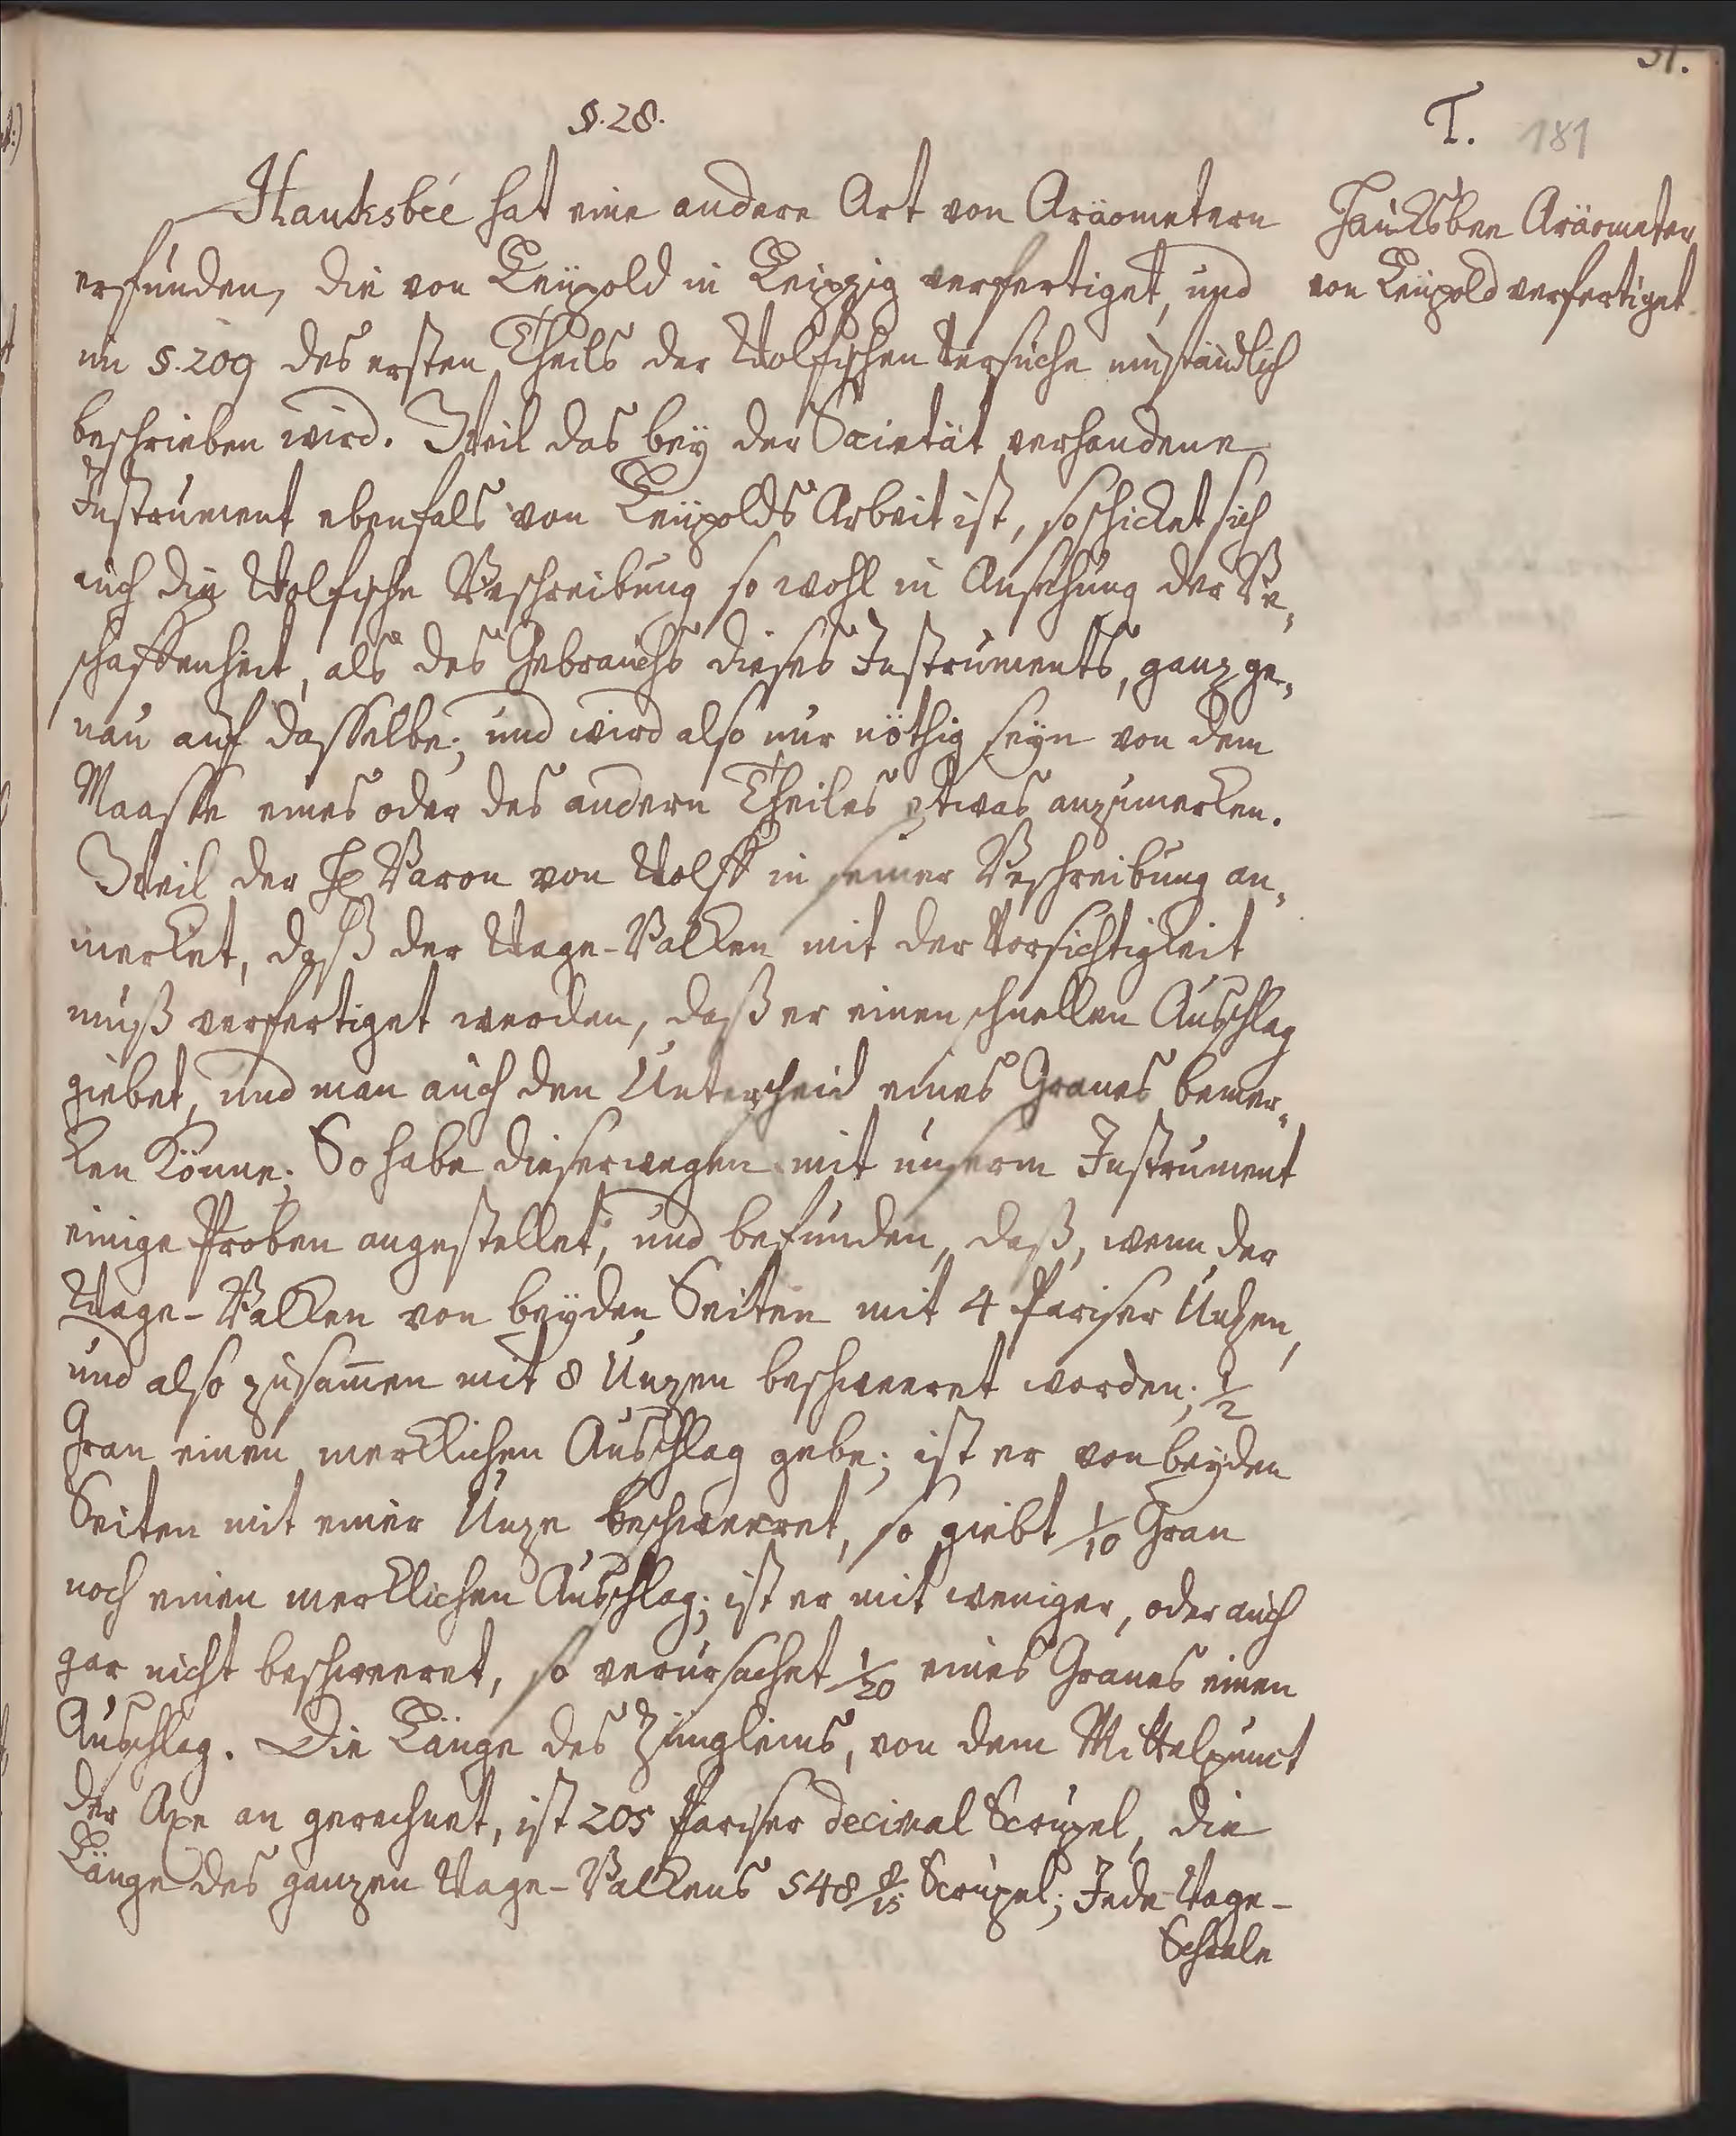 31.
§. 28.
T. 181
Hauksbée hat eine andere Art von Aräometern
erfunden, die von Leüpold in Leipzig verfertiget, und
im §. 209 des ersten Theils der Wolfischen Versuche umständlich
beschrieben wird. Weil das bey der Societät verhandene
Instrument ebenfals von Leüpolds Arbeit ist, so schicket sich
auch die Wolfische Beschreibung so wohl in Ansehung der Be-
schaffenheit, als des Gebrauchs dieses Instruments, ganz ge-
nau auf dasselbe; und wird also nur nöthig seyn von dem
Maasse eines oder des andern Theiles etwas anzumerken.
Weil der H Baron von Wolff in seiner Beschreibung an-
merket, daß der Wage-Balken mit der Vorsichtigkeit
muß verfertiget werden, daß er einen schnellen Ausschlag
giebet, und man auch den Unterscheid eines Granes bemer-
ken könne; So habe dieserwegen mit unserm Instrument
einige Proben angestellet, und befunden, daß, wenn der
Wage-Balken von beyden Seiten mit 4 Pariser Unzen,
und also zusam̄en mit 8 Unzen beschweeret worden; 1/2
Gran einen merklichen Auschlag gebe; ist er von beyden
Seiten mit einer Unze beschweeret, so giebt 1/10 Gran
noch einen merklichen Auschlag; ist er mit weniger, oder auch
gar nicht beschweeret, so verursachet 1/20 eines Granes einen
Auschlag. Die Länge des Züngleins, von dem Mittelpunct
der Axe an gerechnet, ist 205 Pariser decimal Scrupel, die
Länge des ganzen Wage-Balkens 548 8/15 Scrupel; Jede Wage-
Schaale
Hauksbee Aräometer
von Leüpold verfertiget